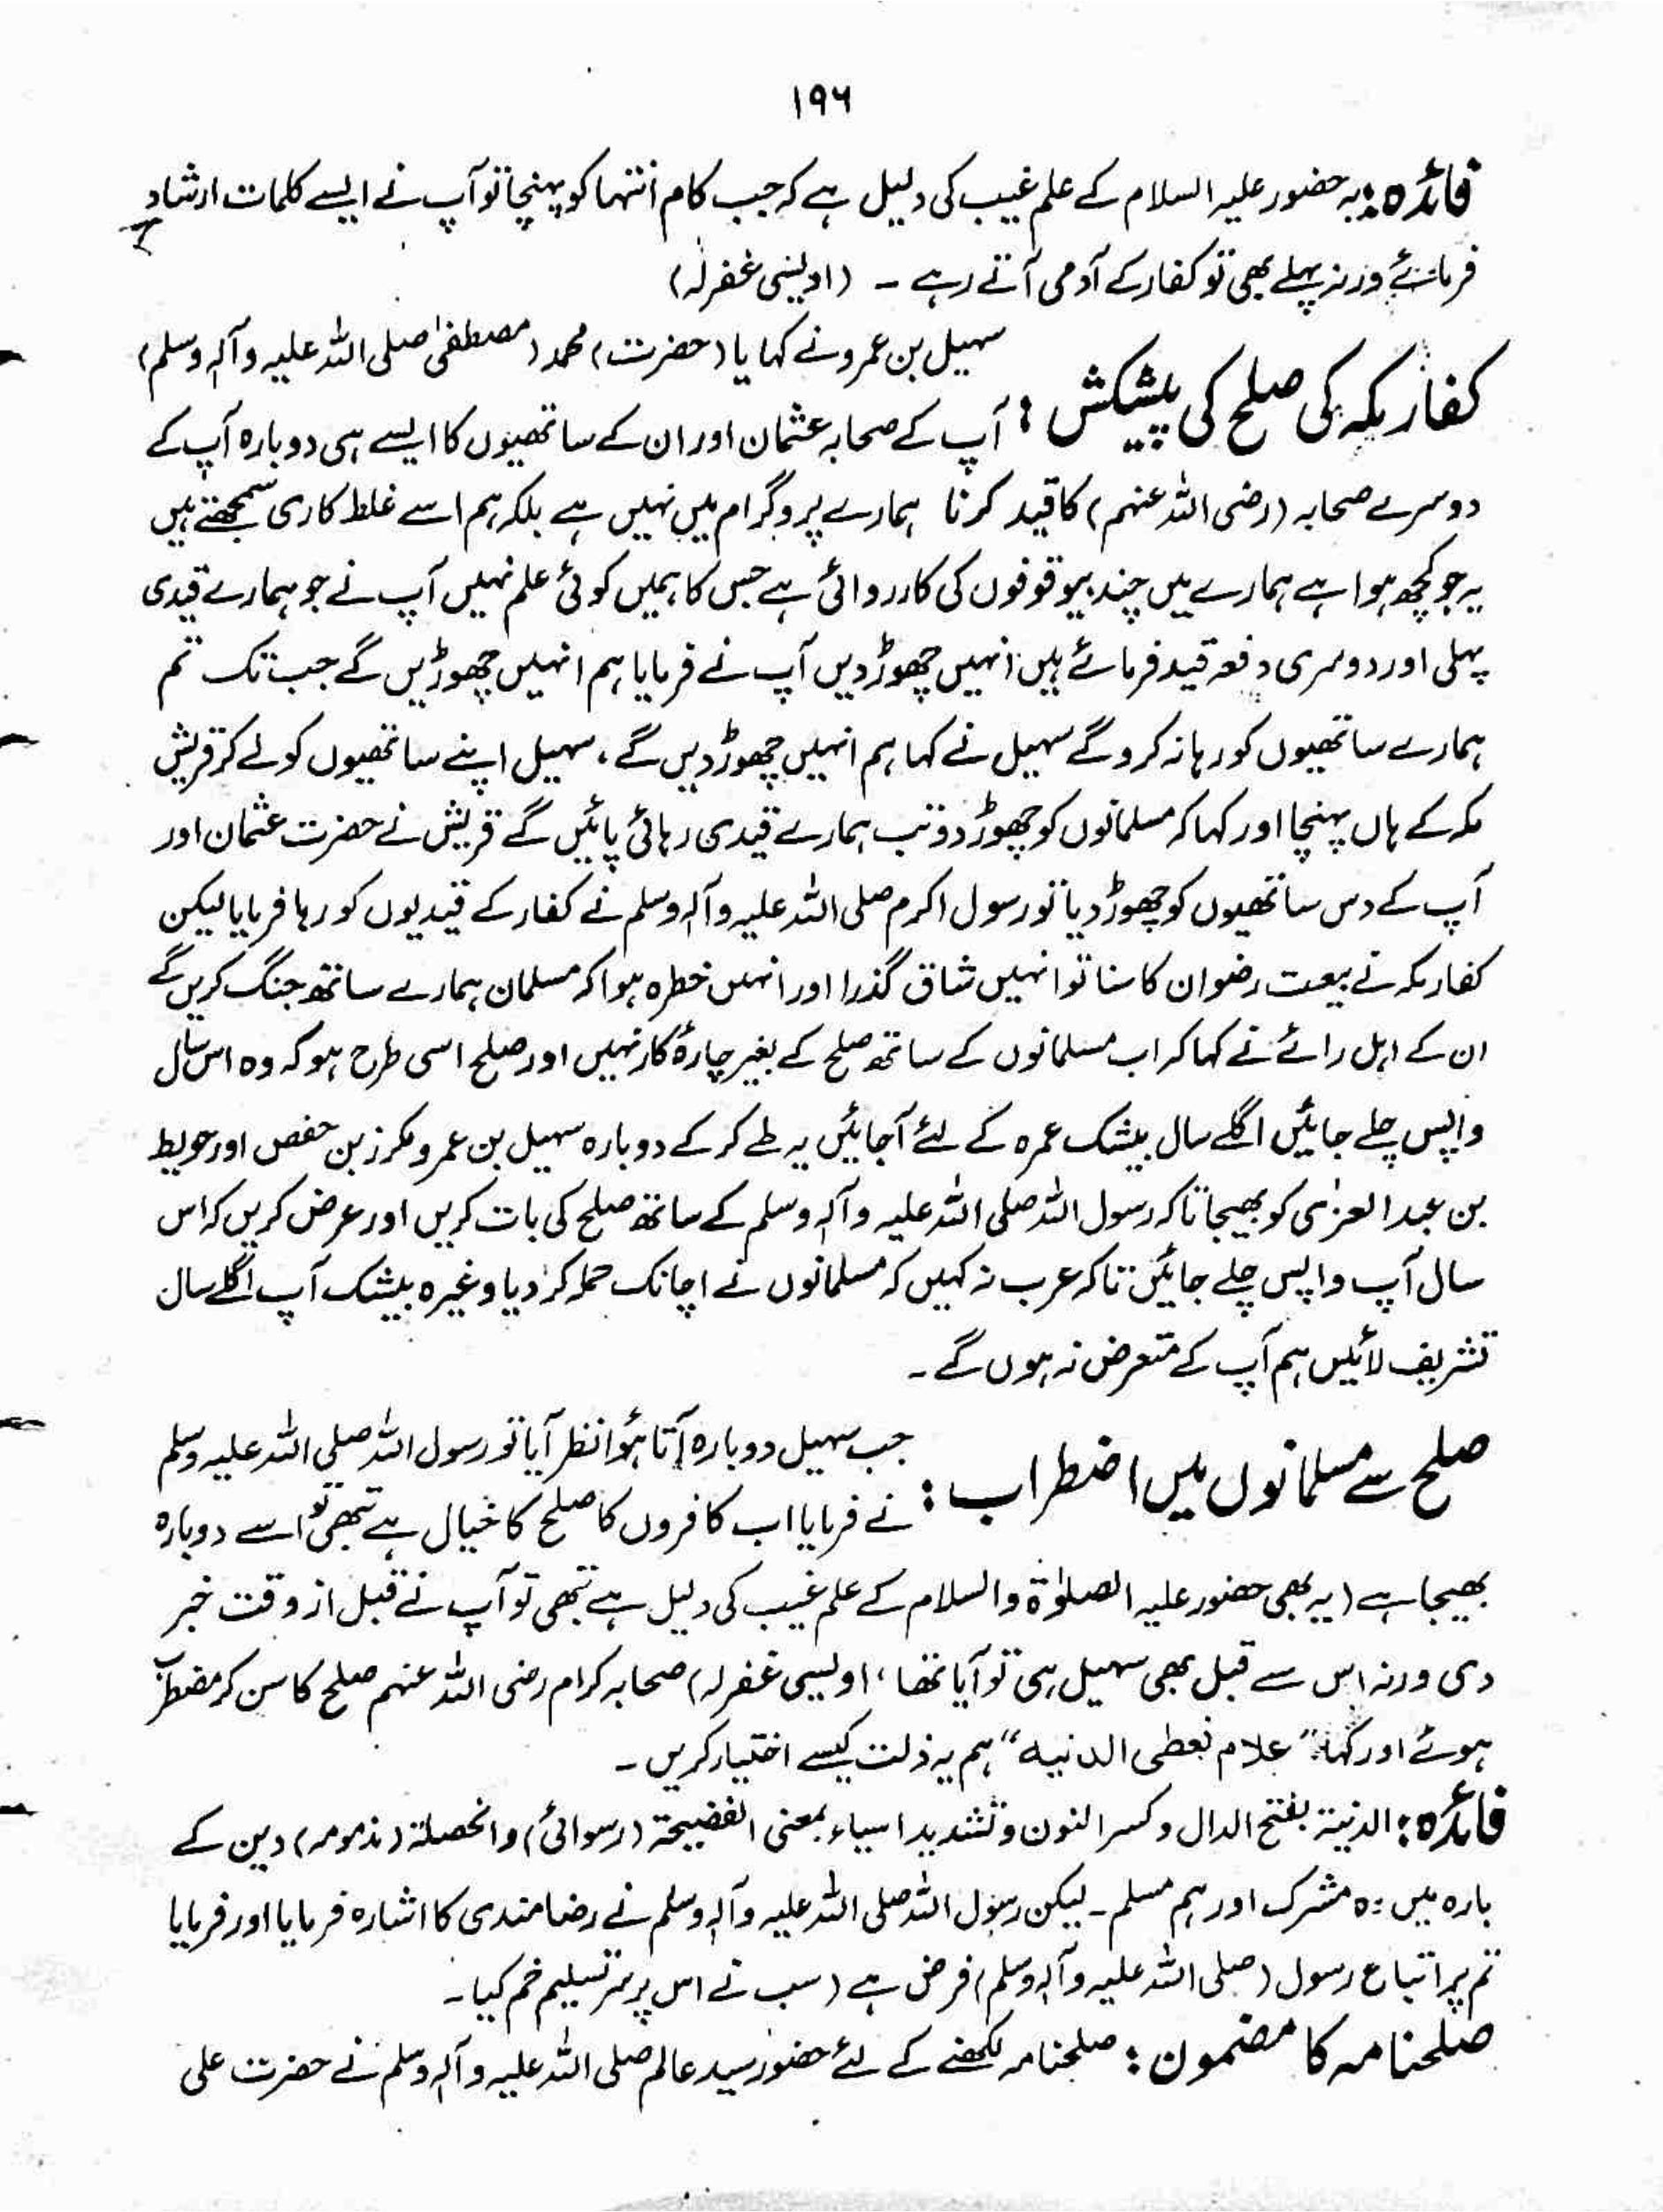 ۱۹۶
فائدہ: یہ حضور علیہ السلام کے علم غیب کی دلیل ہے کہ جب کام انتہا کو پہنچا تو آپ نے ایسے کلمات ارشاد
فرمائے ورنہ پہلے بھی تو کفار کے آدمی آتے رہے ۔ (اویسی غفرلہ)
کفار مکہ کی صلح کی پیشکش : سہیل بن عمرو نے کہا یا (حضرت) محمد (مصطفیٰ صلی اللہ علیہ وآلہ وسلم)
آپ کے صحابہ عثمان اور ان کے ساتھیوں کا ایسے ہی دوبارہ آپ کے
دوسرے صحابہ (رضی اللہ عنہم) کا قید کرنا ہمارے پروگرام میں نہیں ہے بلکہ ہم اسے غلط کاری سمجھتے ہیں
یہ جو کچھ ہوا ہے ہمارے میں چند بیوقوفوں کی کارروائی ہے جس کا ہمیں کوئی علم نہیں آپ نے جو ہمارے قیدی
پہلی اور دوسری دفعہ قید فرمائے ہیں انہیں چھوڑ دیں آپ نے فرمایا ہم انہیں چھوڑیں گے جب تک تم
ہمارے ساتھیوں کو رہا نہ کرو گے سہیل نے کہا ہم انہیں چھوڑ دیں گے ، سہیل اپنے ساتھیوں کو لے کر قریش
مکہ کے ہاں پہنچا اور کہا کہ مسلمانوں کو چھوڑ دو تب ہمارے قیدی رہائی پائیں گے قریش نے حضرت عثمان اور
آپ کے دس ساتھیوں کو چھوڑ دیا تو رسول اکرم صلی اللہ علیہ وآلہ وسلم نے کفار کے قیدیوں کو رہا فرمایا لیکن
کفار مکہ نے بیعت رضوان کا سنا تو انہیں شاق گذرا اور انہیں خطرہ ہوا کہ مسلمان ہمارے ساتھ جنگ کریں گے
ان کے اہل رائے نے کہا کہ اب مسلمانوں کے ساتھ صلح کے بغیر چارۂ کار نہیں اور صلح اسی طرح ہو کہ وہ اس سال
واپس چلے جائیں اگلے سال بیشک عمرہ کے لئے آجائیں یہ طے کر کے دوبارہ سہیل بن عمرو مکرز بن حفص اور حویط
بن عبد العزٰی کو بھیجا تاکہ رسول اللہ صلی اللہ علیہ وآلہ وسلم کے ساتھ صلح کی بات کریں اور عرض کریں کہ اس
سال آپ واپس چلے جائیں تاکہ عرب نہ کہیں کہ مسلمانوں نے اچانک حملہ کر دیا وغیرہ بیشک آپ اگلے سال
تشریف لائیں ہم آپ کے متعرض نہ ہوں گے ۔
صلح سے مسلمانوں میں اضطراب : جب سہیل دوبارہ آتا ہؤا نظر آیا تو رسول اللہ صلی اللہ علیہ وسلم
نے فرمایا اب کافروں کا صلح کا خیال ہے تبھی تو اسے دوبارہ
بھیجا ہے (یہ بھی حضور علیہ الصلوٰۃ والسلام کے علم غیب کی دلیل ہے تبھی تو آپ نے قبل از وقت خبر
دی ورنہ اس سے قبل بھی سہیل ہی تو آیا تھا ، اویسی غفرلہ) صحابہ کرام رضی اللہ عنہم صلح کا سن کر مضطرب
ہوئے اور کہا: "علام نعطی الدنیه" ہم یہ ذلت کیسے اختیار کریں ۔
فائدہ : الدنیۃ بفتح الدال و کسر النون و تشدید الیاء بمعنی الفضیحۃ (رسوائی) والخصلۃ (مذمومہ) دین کے
بارہ میں وہ مشرک اور ہم مسلم ۔ لیکن رسول اللہ صلی اللہ علیہ وآلہ وسلم نے رضامندی کا اشارہ فرمایا اور فرمایا
تم پر اتباع رسول (صلی اللہ علیہ وآلہ وسلم) فرض ہے (سب نے اس پر سر تسلیم خم کیا ۔
صلحنامہ کا مضمون : صلحنامہ لکھنے کے لئے حضور سید عالم صلی اللہ علیہ وآلہ وسلم نے حضرت علی